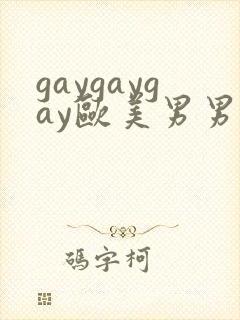 gaygayg
ay歐美男男
碼字柯